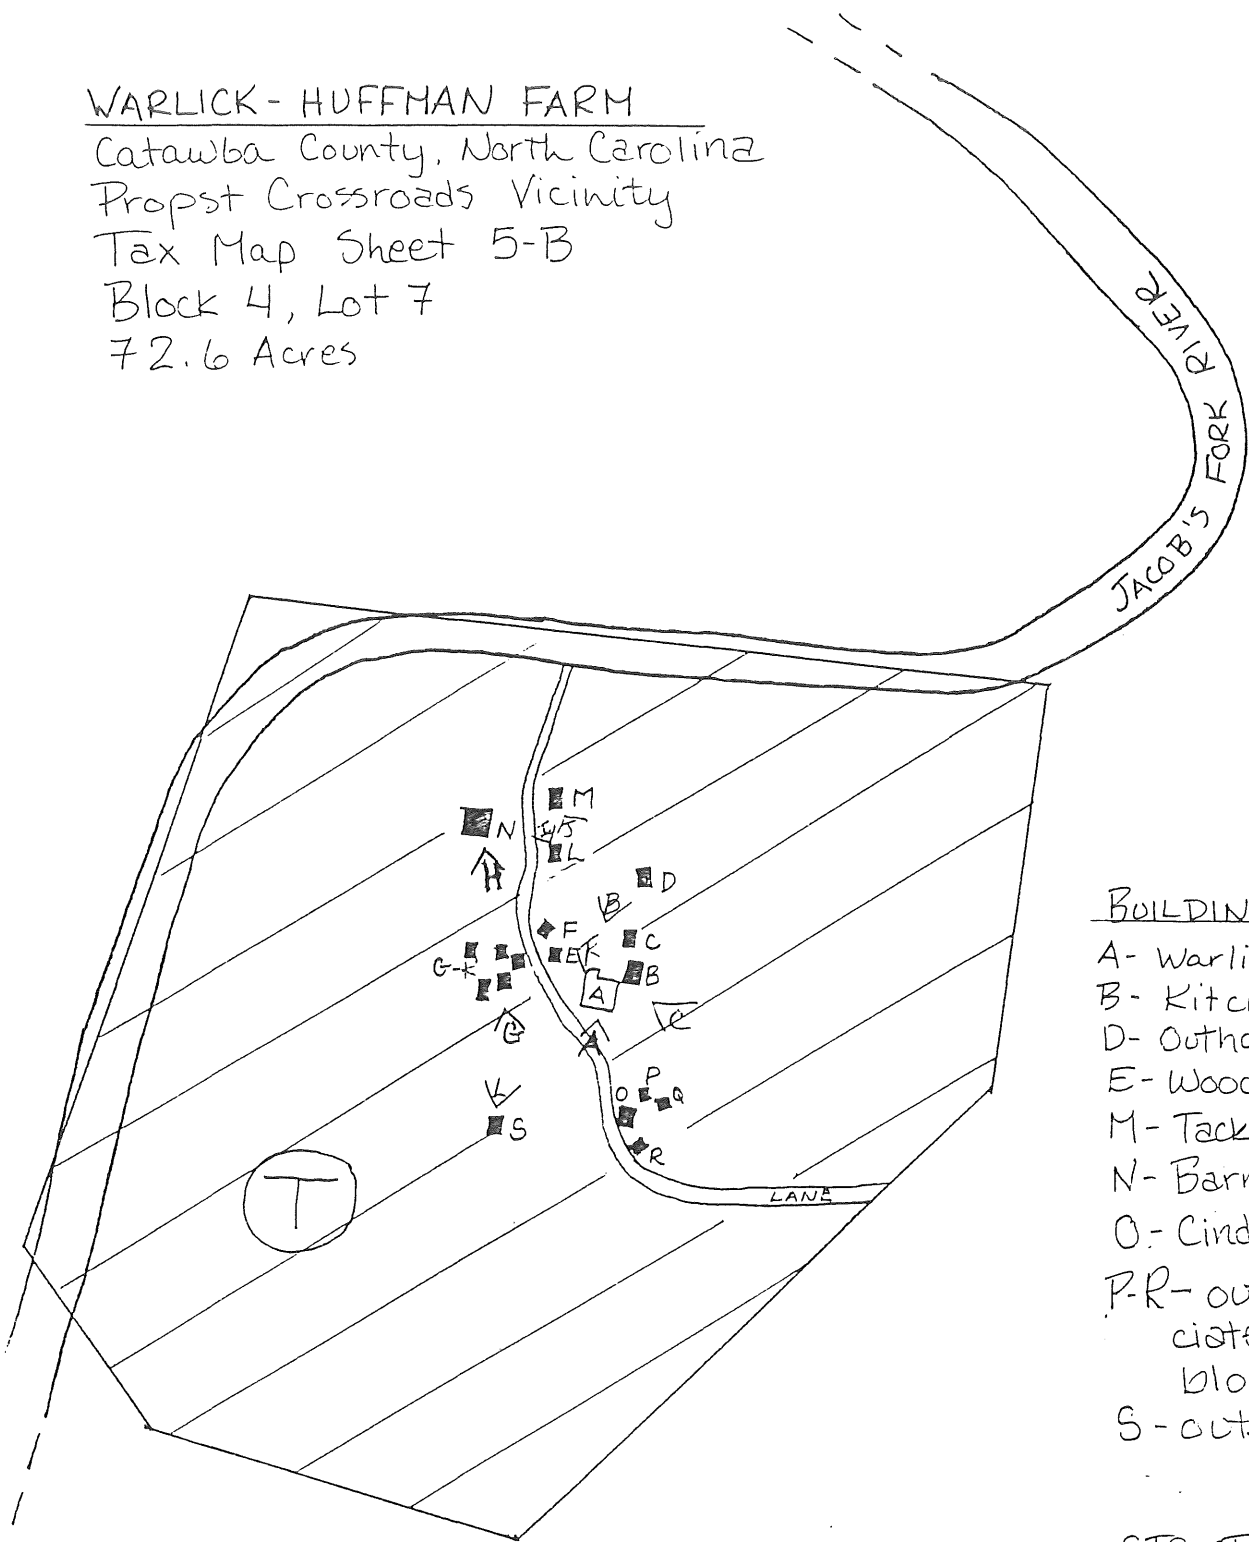 WARLICK - HUFFMAN FARM
Catawba County, North Carolina
Propst Crossroads Vicinity
Tax Map Sheet 5-B
Block 4, Lot 7
72.6 Acres
JACOB'S FORK RIVER
M
N
I/J
L
H
D
B
F
C
E
K
G-K
B
A
C
G
A
P
O
Q
L
S
R
T
LANE
BUILDIN
A- Warli
B- Kitc
D- Outho
E- Wood
M- Tack
N- Barn
O- Cind
P-R- ou
ciate
blo
S- out